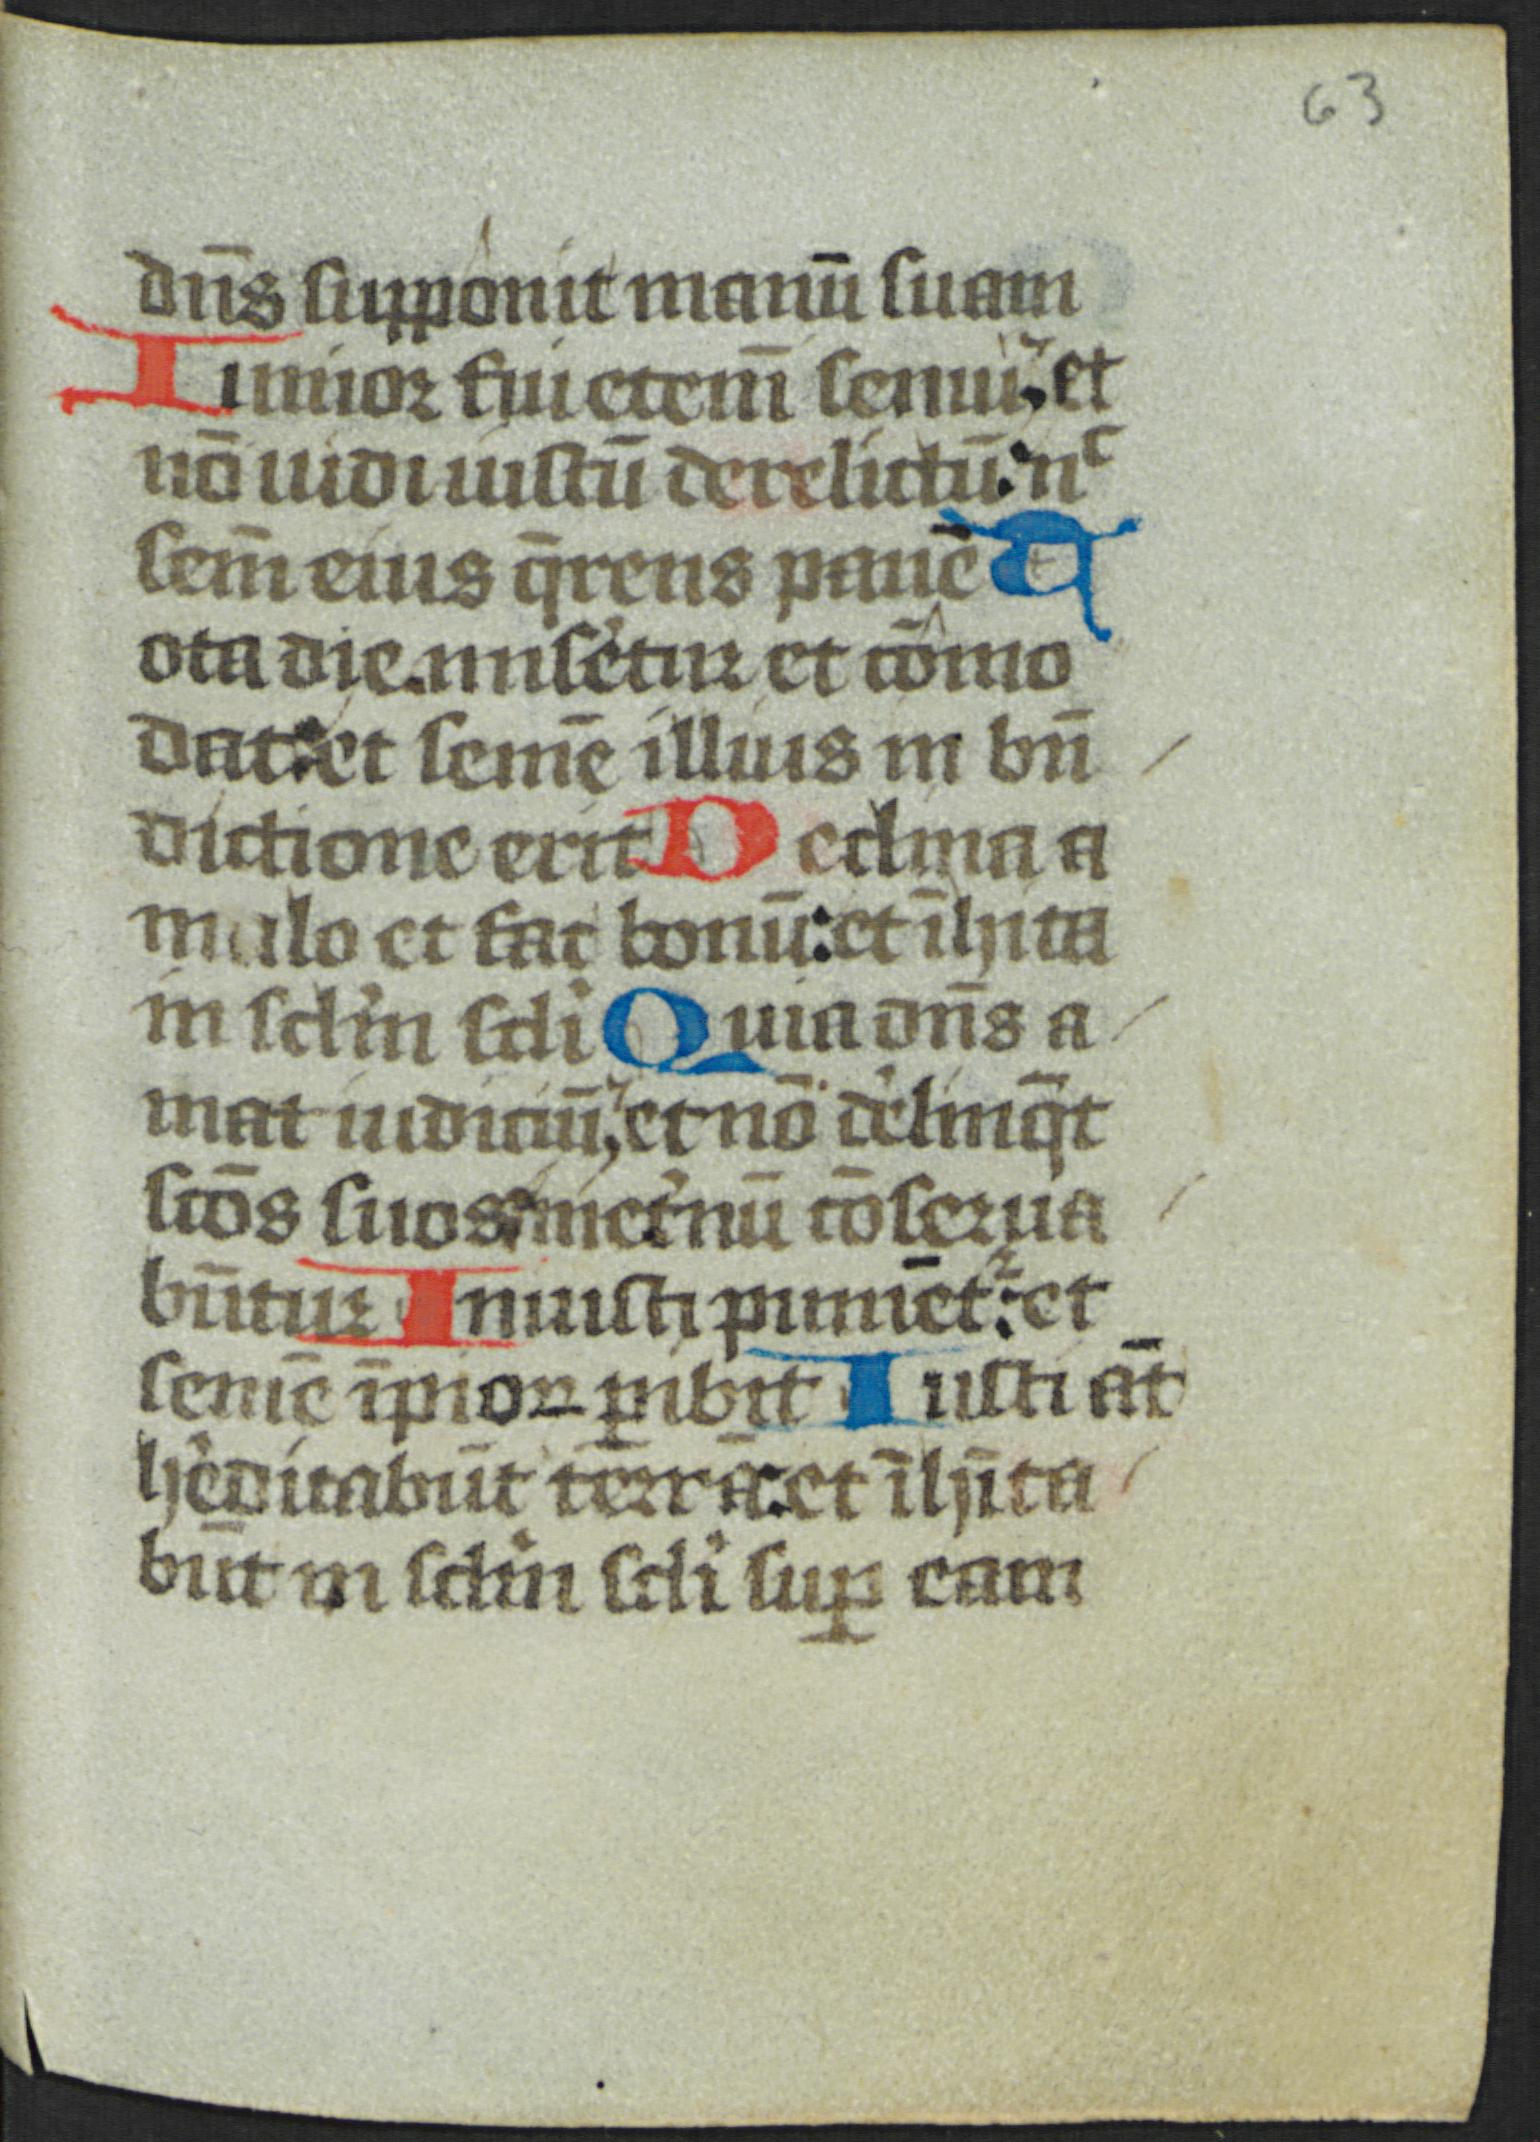 63
dn̄s supponit manū suam
Iunior fui etem̄ senui; et
nō uidi iustū derelictū: nͨ
sem̄ eius q̄rens panē T
ota die miset̉ur et cōmo
dat: et semē illius in bn̄
dictione erit Declina a
malo et fac bonū: et īhita
in scl̉m scl̉i Quia dn̄s a
mat iudiciū; et nō d̉elinq̄t
scōs suos: inet̉nū cōserua
būtur Iniusti puniēt᷑: et
semē īpioꝝ ꝑibit Iusti āt
h̉editabūt terrā: et īhīta
būt in scl̉m scl̉i suꝑ eam